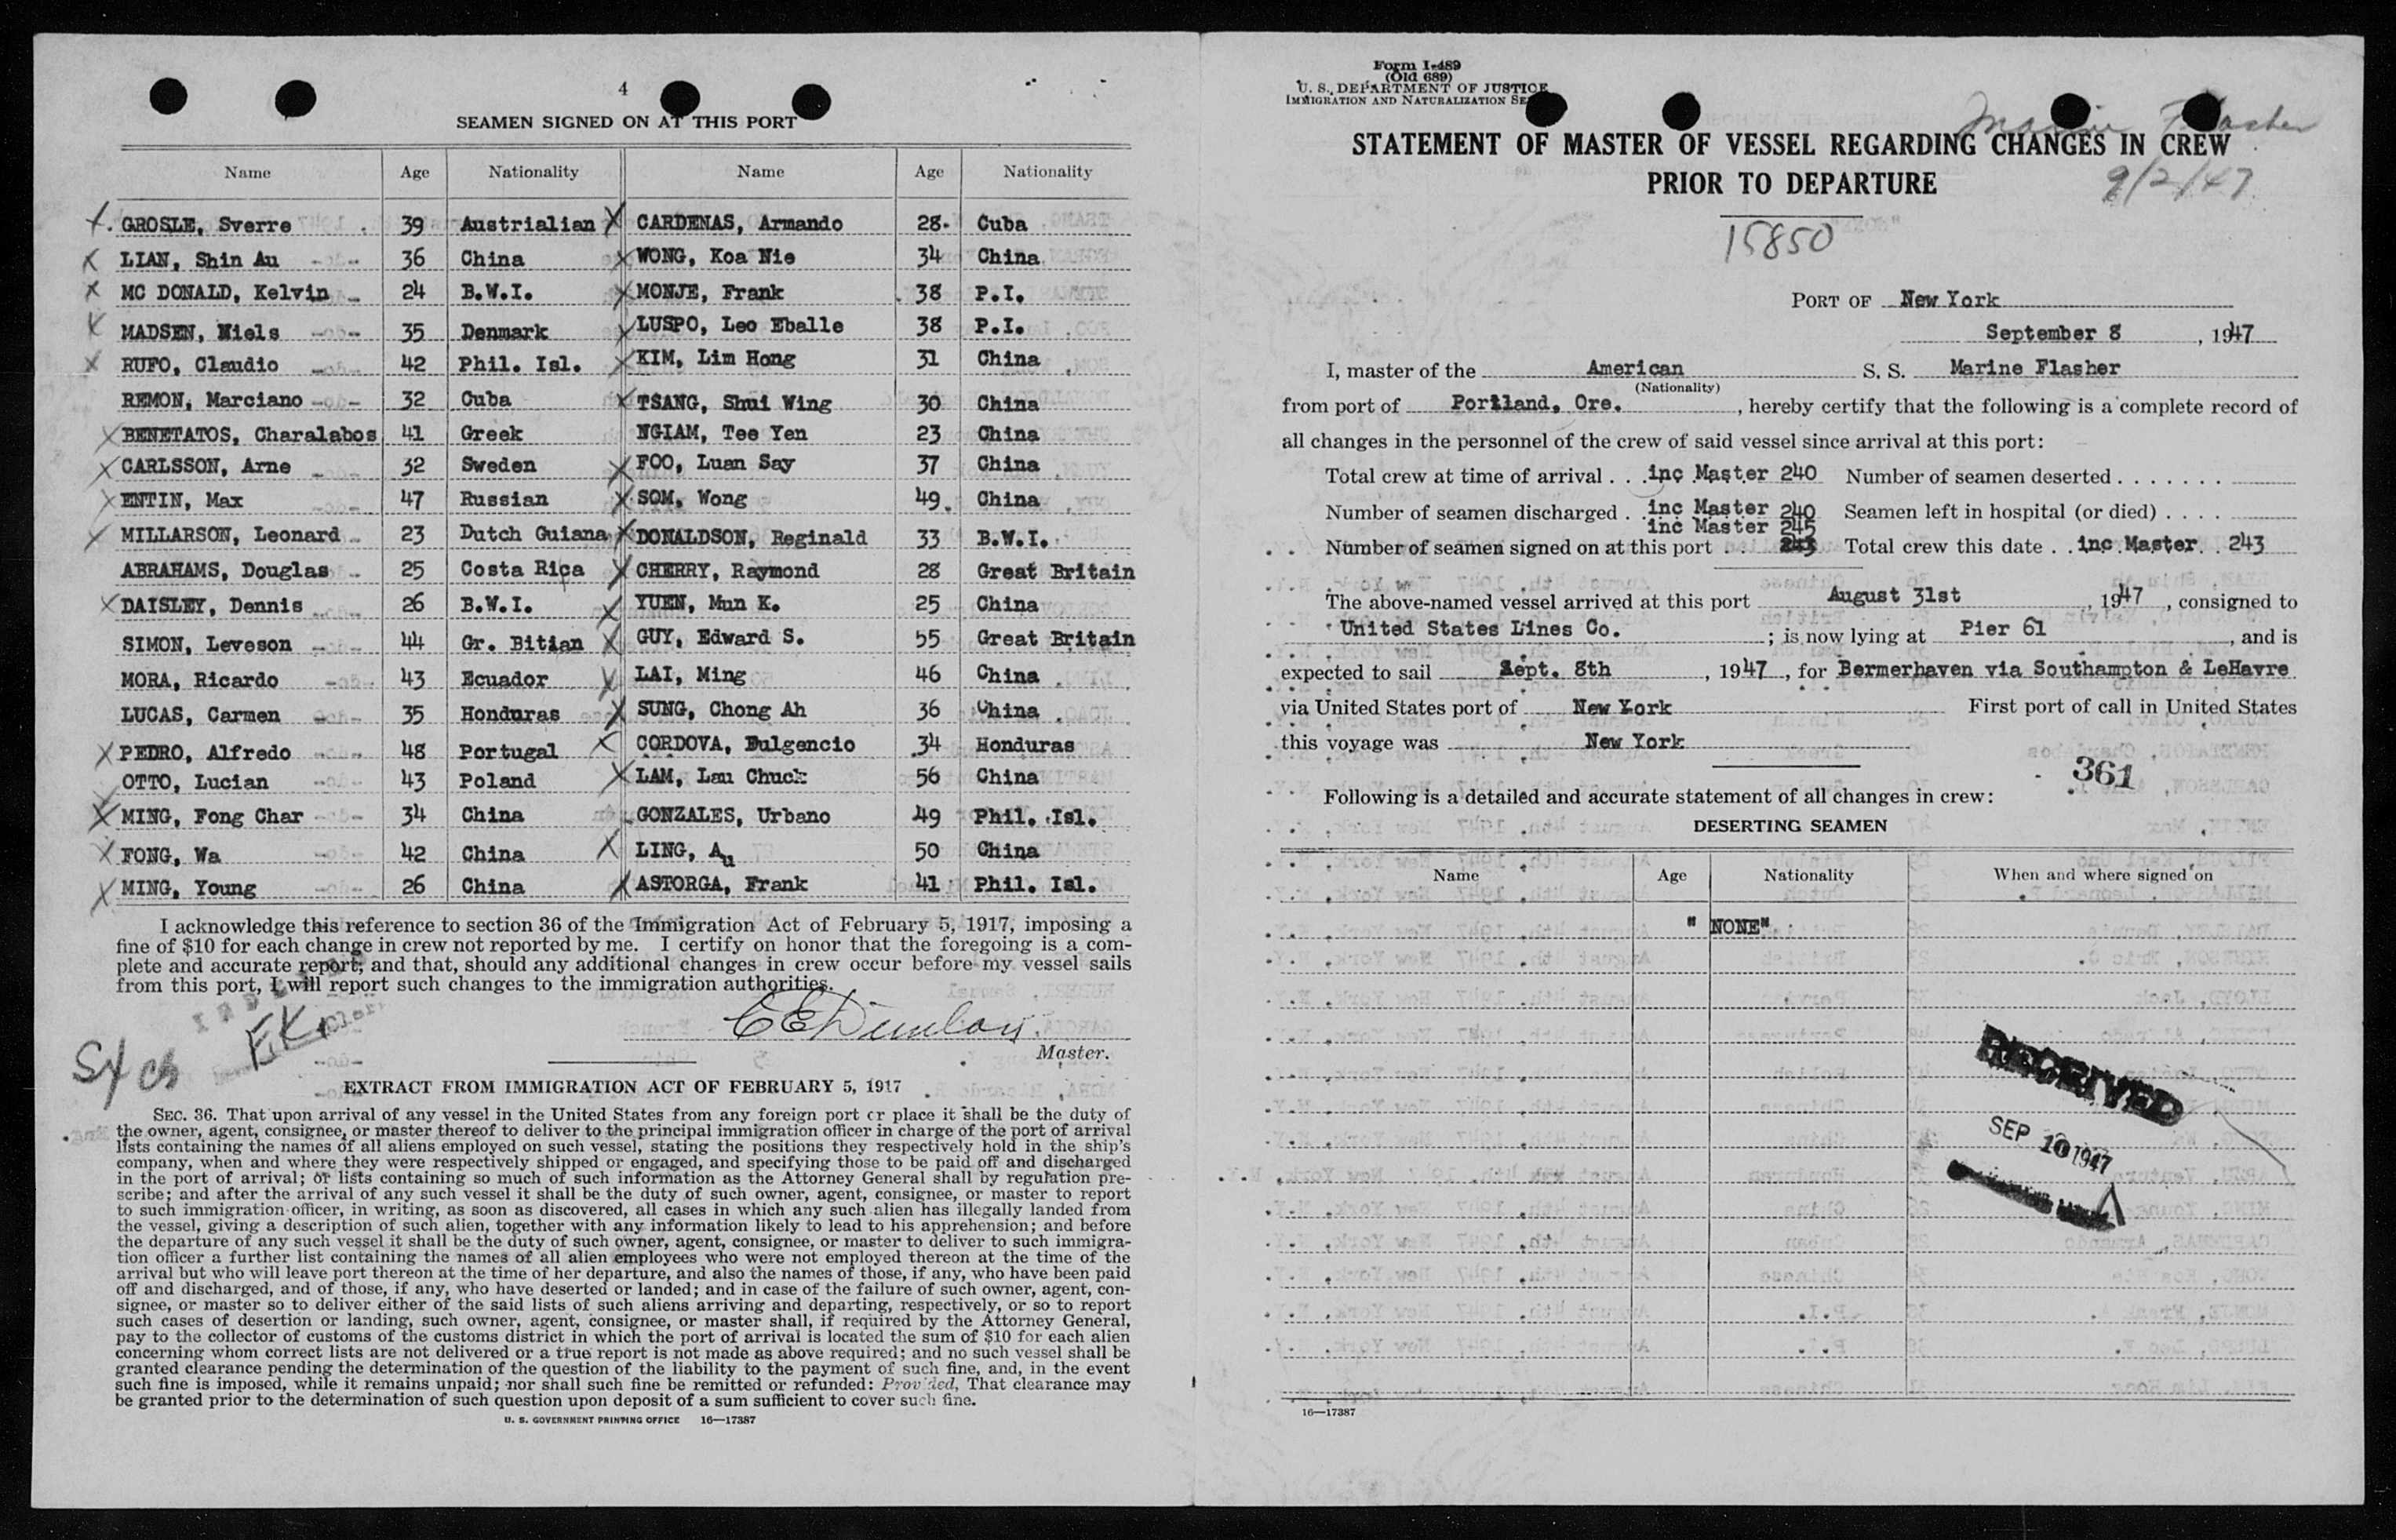 4
SEAMEN SIGNED ON AT THIS PORT
Name Age Nationality Name Age Nationality
GROSLE, Sverre 39 Austrialian X CARDENAS, Armando 28. Cuba
X LIAN, Shin Au -do- 36 China X WONG, Koa Nie 34 China
X MC DONALD, Kelvin 24 B.W.I. X MONJE, Frank 38 P.I.
X MADSEN, Niels -do- 35 Denmark X LUSPO, Leo Eballe 38 P.I.
X RUFO, Claudio -do- 42 Phil. Isl. X KIM, Lim Hong 31 China
REMON, Marciano -do- 32 Cuba X TSANG, Shui Wing 30 China
X BENETATOS, Charalabos 41 Greek NGIAM, Tee Yen 23 China
X CARLSSON, Arne 32 Sweden X FOO, Luan Say 37 China
X ENTIN, Max -do- 47 Russian X SOM, Wong 49. China
X MILLARSON, Leonard 23 Dutch Guiana X DONALDSON, Reginald 33 B.W.I.
ABRAHAMS, Douglas 25 Costa Rica X CHERRY, Raymond 28 Great Britain
X DAISLEY, Dennis 26 B.W.I. X YUEN, Mun K. 25 China
SIMON, Leveson -do- 44 Gr. Bitian X GUY, Edward S. 55 Great Britain
MORA, Ricardo -do- 43 Ecuador X LAI, Ming 46 China
LUCAS, Carmen -do- 35 Honduras X SUNG, Chong Ah 36 China
X PEDRO, Alfredo -do- 48 Portugal X CORDOVA, Fulgencio 34 Honduras
OTTO, Lucian -do- 43 Poland X LAM, Lau Chuck 56 China
X MING, Fong Char -do- 34 China GONZALES, Urbano 49 Phil. Isl.
X FONG, Wa -do- 42 China X LING, Au 50 China
X MING, Young -do- 26 China X ASTORGA, Frank 41 Phil. Isl.
I acknowledge this reference to section 36 of the Immigration Act of February 5, 1917, imposing a
fine of $10 for each change in crew not reported by me. I certify on honor that the foregoing is a com-
plete and accurate report; and that, should any additional changes in crew occur before my vessel sails
from this port, I will report such changes to the immigration authorities.
EK.
Master.
EXTRACT FROM IMMIGRATION ACT OF FEBRUARY 5, 1917
SEC. 36. That upon arrival of any vessel in the United States from any foreign port or place it shall be the duty of
the owner, agent, consignee, or master thereof to deliver to the principal immigration officer in charge of the port of arrival
lists containing the names of all aliens employed on such vessel, stating the positions they respectively hold in the ship's
company, when and where they were respectively shipped or engaged, and specifying those to be paid off and discharged
in the port of arrival; or lists containing so much of such information as the Attorney General shall by regulation pre-
scribe; and after the arrival of any such vessel it shall be the duty of such owner, agent, consignee, or master to report
to such immigration officer, in writing, as soon as discovered, all cases in which any such alien has illegally landed from
the vessel, giving a description of such alien, together with any information likely to lead to his apprehension; and before
the departure of any such vessel it shall be the duty of such owner, agent, consignee, or master to deliver to such immigra-
tion officer a further list containing the names of all alien employees who were not employed thereon at the time of the
arrival but who will leave port thereon at the time of her departure, and also the names of those, if any, who have been paid
off and discharged, and of those, if any, who have deserted or landed; and in case of the failure of such owner, agent, con-
signee, or master so to deliver either of the said lists of such aliens arriving and departing, respectively, or so to report
such cases of desertion or landing, such owner, agent, consignee, or master shall, if required by the Attorney General,
pay to the collector of customs of the customs district in which the port of arrival is located the sum of $10 for each alien
concerning whom correct lists are not delivered or a true report is not made as above required; and no such vessel shall be
granted clearance pending the determination of the question of the liability to the payment of such fine, and, in the event
such fine is imposed, while it remains unpaid; nor shall such fine be remitted or refunded: Provided, That clearance may
be granted prior to the determination of such question upon deposit of a sum sufficient to cover such fine.
U. S. GOVERNMENT PRINTING OFFICE 16—17387
Form I-489
(Old 689)
U. S. DEPARTMENT OF JUSTICE
IMMIGRATION AND NATURALIZATION SE
Marine Flasher
STATEMENT OF MASTER OF VESSEL REGARDING CHANGES IN CREW
PRIOR TO DEPARTURE
9/2/47
15850
PORT OF New York
September 8, 1947
I, master of the American S. S. Marine Flasher
(Nationality)
from port of Portland, Ore., hereby certify that the following is a complete record of
all changes in the personnel of the crew of said vessel since arrival at this port:
Total crew at time of arrival . . inc Master 240 Number of seamen deserted . . . . . . .
Number of seamen discharged . inc Master 240 Seamen left in hospital (or died) . . . .
inc Master 245
Number of seamen signed on at this port . . 243 Total crew this date . . inc Master . . 243
The above-named vessel arrived at this port August 31st, 1947, consigned to
United States Lines Co.; is now lying at Pier 61, and is
expected to sail Sept. 8th, 1947, for Bermerhaven via Southampton & LeHavre
via United States port of New York First port of call in United States
this voyage was New York
361
Following is a detailed and accurate statement of all changes in crew:
DESERTING SEAMEN
Name Age Nationality When and where signed on
"NONE"
RECEIVED
SEP 10 1947
16—17387